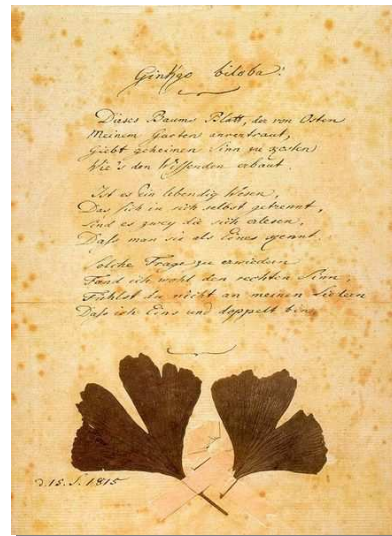 Ginkgo biloba.
Dieses Baums Blatt, der von Osten
Meinem Garten anvertraut,
Giebt geheimen Sinn zu kosten
Wie's den Wissenden erbaut.
Ist es Ein lebendig Wesen,
Das sich in sich selbst getrennt,
Sind es zwey die sich erlesen,
Dass man sie als Eines kennt.
Solche Frage zu erwiedern
Fand ich wohl den rechten Sinn
Fühlst du nicht an meinen Liedern
Dass ich Eins und doppelt bin.
d. 15. S. 1815